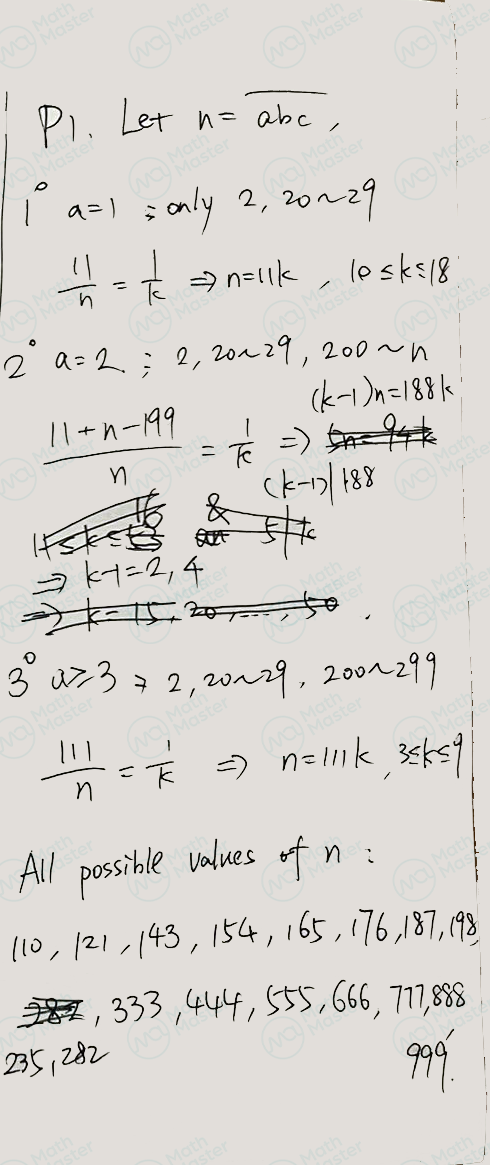 P1. Let n = abc,
1° a=1 : only 2, 20~29
11/n = 1/k ⇒ n=11k, 10≤k≤18
2° a=2 : 2, 20~29, 200~n
(k-1)n=188k
(11+n-199)/n = 1/k ⇒
(k-1)|188
&
⇒ k-1=2,4
3° a≥3 : 2, 20~29, 200~299
111/n = 1/k ⇒ n=111k, 3≤k≤9
All possible values of n :
110, 121, 143, 154, 165, 176, 187, 198,
282, 333, 444, 555, 666, 777, 888
235, 282 999.
Math Master